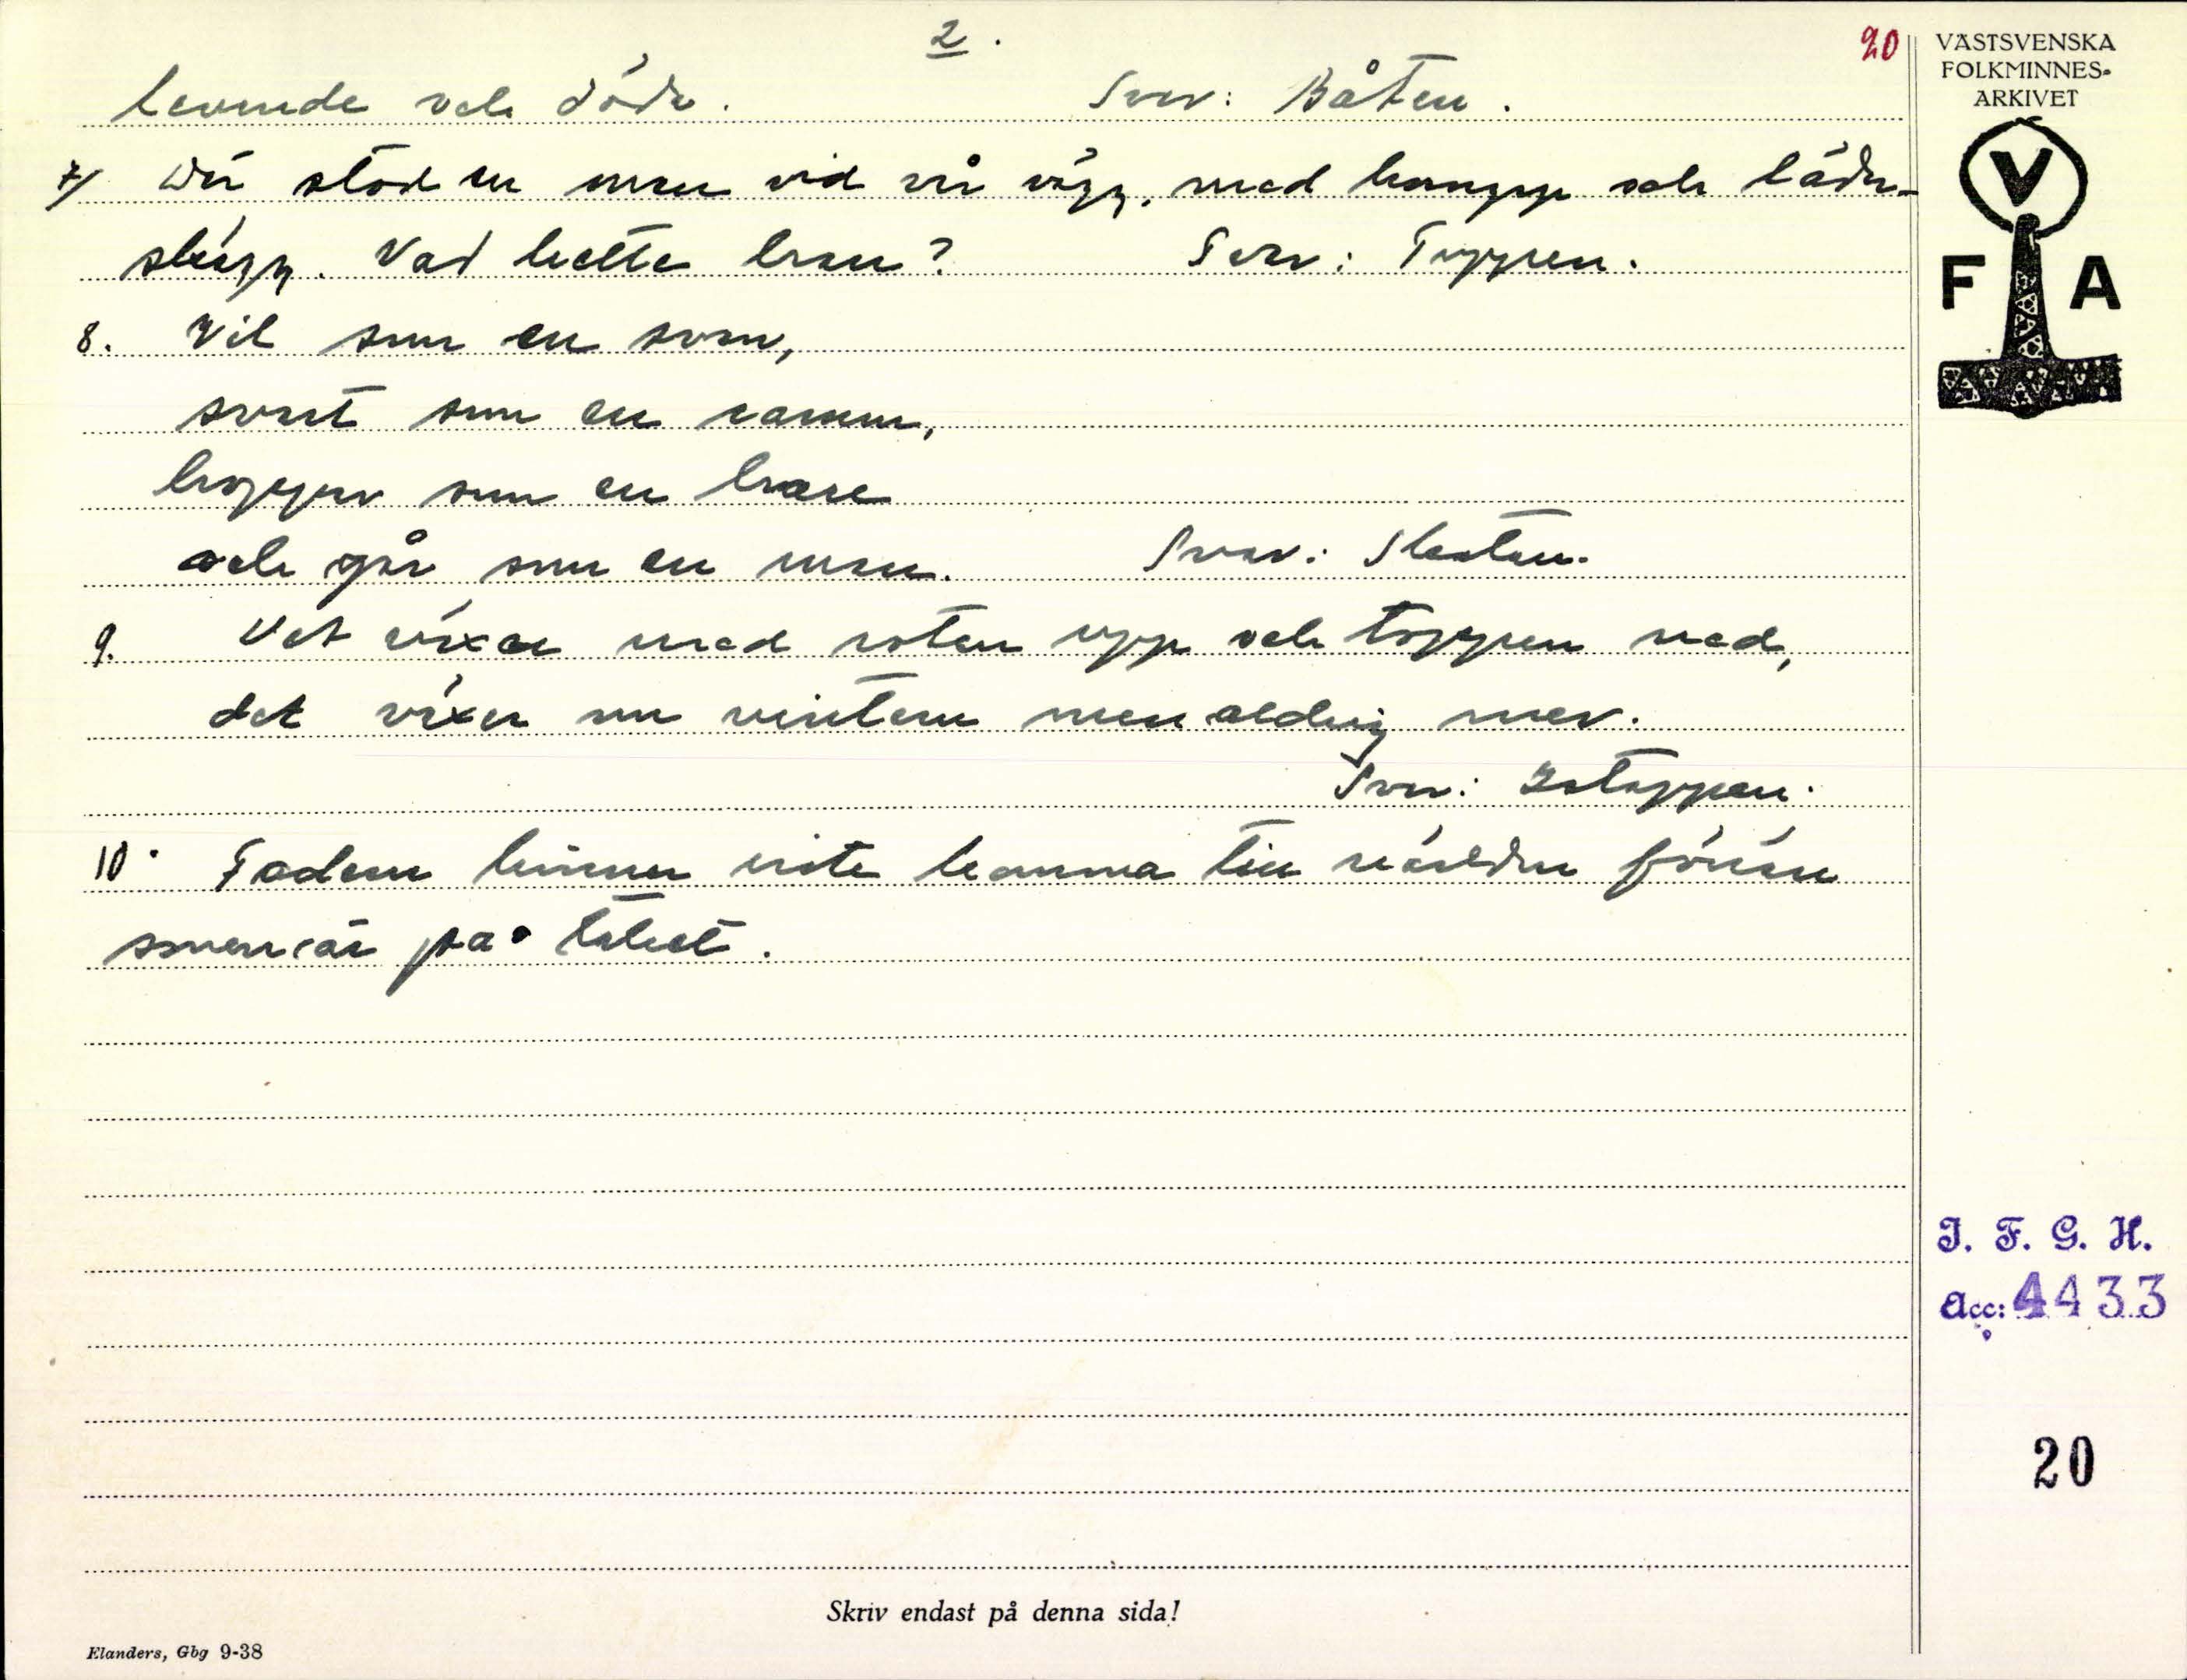 2.
20
levande och döda. Svar: Båten.
7/ Där stod en man vid vår vägg, med kam och läder-
skägg. Vad hette han? Svar: Tuppen.
8. Vit som en svan,
svart som en ramm,
hoppar som en hare
och går som en man. Svar: Skatan.
9. Det växer med roten upp och toppen ned,
det växer om vintern men aldrig mer.
Svar: Istappen.
10. Fadern hinner inte komma till världen förrän
sonen är på taket.
VÄSTSVENSKA
FOLKMINNES-
ARKIVET
V
F A
I. F. G. H.
Acc: 4433
20
Skriv endast på denna sida!
Elanders, Gbg 9-38